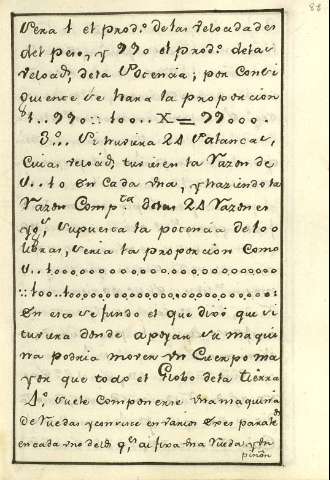 88
sera 1 el prod.º de las velocidades
del peso, y 990 el prod.º de la
veloci.d dela Potencia; por consi
guiente se hara la proporcion
1..990::100..X=99000.
3.º.. Si huviera 24 Palancas,
cuias veloci.d tuviesen la Razon de
1..10 en cada una, y haziendo la
Razon Comp.ta de las 24 Razones
y q.e supuesta la potencia de 100
libras, seria la proporcion como
1..1000000000000000000000000
::100..
En esto se fundó el que dixo que si
tuviera donde apoyar su maqui
na podria mover un Cuerpo ma
yor que todo el Globo dela tierra
4.º suele componerse una maquina
de Ruedas y consiste en varios exes paralel.s
en cada uno de los q.s ai fixa una Rueda y un
piñon